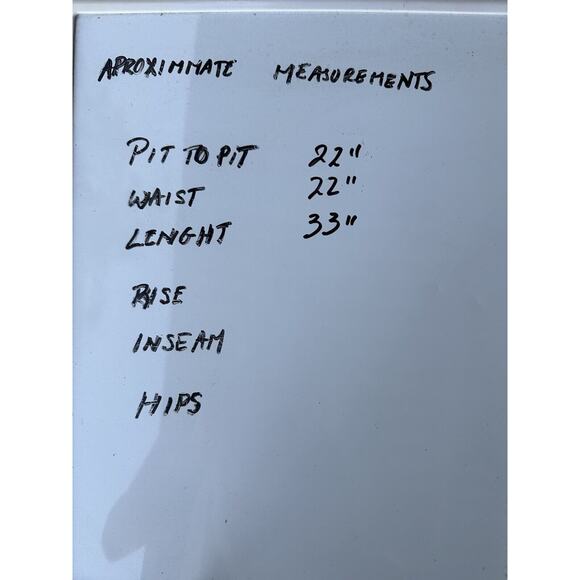 APROXIMMATE MEASUREMENTS
PIT TO PIT 22"
WAIST 22"
LENGHT 33"
RISE
INSEAM
HIPS